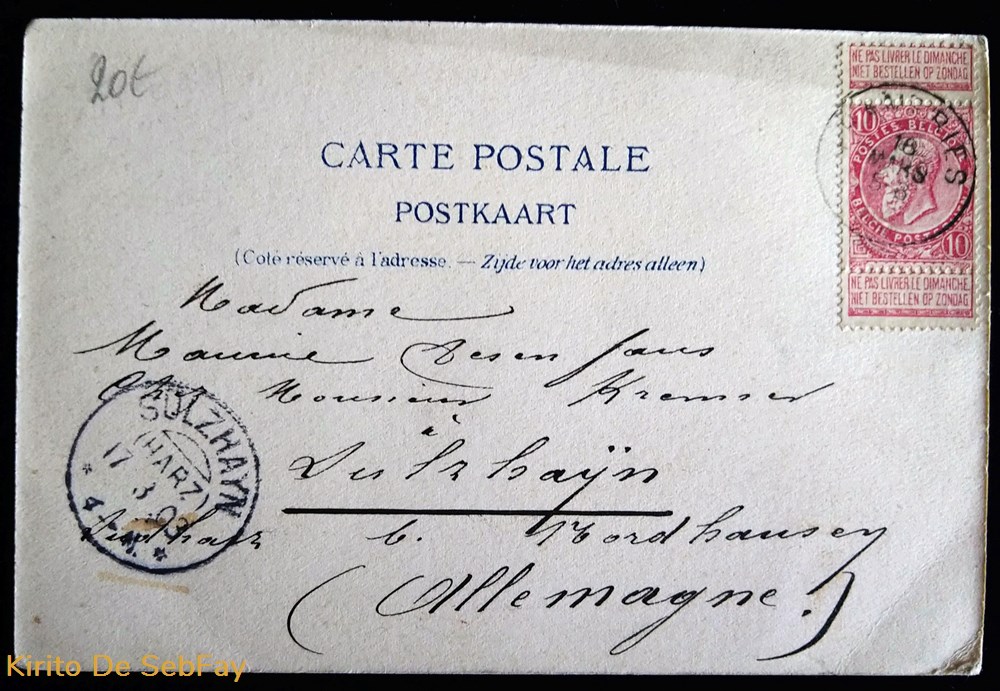 20€
NE PAS LIVRER LE DIMANCHE
NIET BESTELLEN OP ZONDAG
10
POSTES BELG
16
MARS
BELGIE POST
10
NE PAS LIVRER LE DIMANCHE
NIET BESTELLEN OP ZONDAG
CARTE POSTALE
POSTKAART
(Coté réservé à l'adresse. — Zijde voor het adres alleen)
Madame
Maurice Desenfans
Chez Monsieur Kremser
à
Sulzhaÿn
Südharz b. Nordhausen
(Allemagne.)
SÜLZHAYN
(HARZ)
17 3 03
4-5 N.
Kirito De SebFay